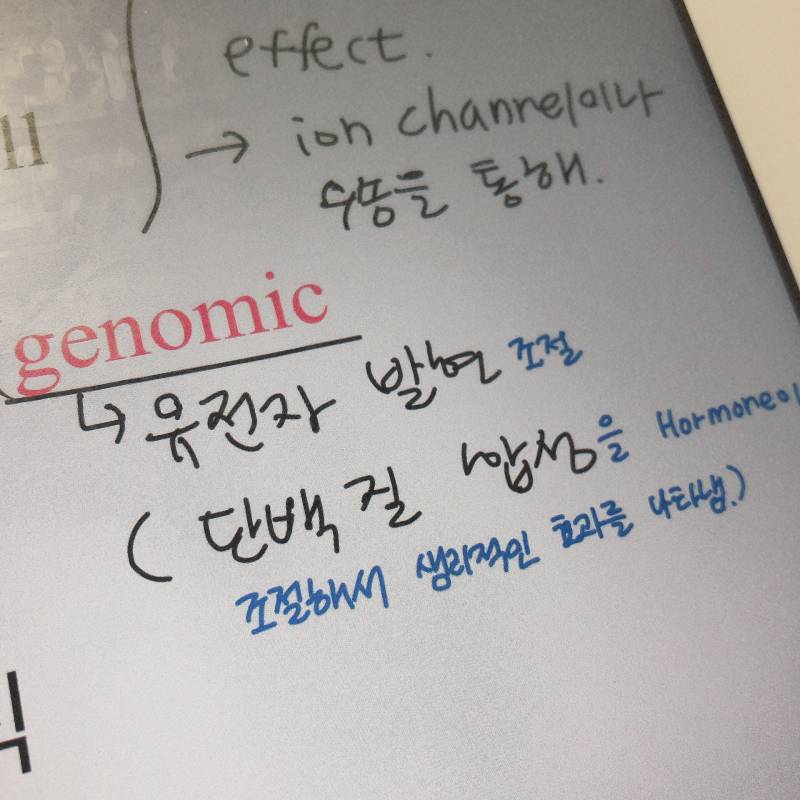 effect.
11
→ ion channel이나
수용을 통해.
(genomic
↳ 유전자 발현 조절
(단백질 합성을 Hormone이
조절해서 생리적인 효과를 나타냄.)
식